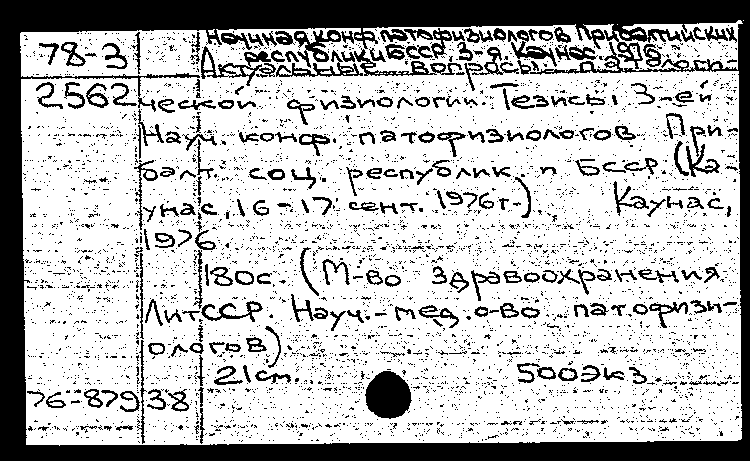 Научная конф. патофизиологов Прибалтийских
республик и БССР. 3-я. Каунас. 1976
78-3 Актуальные вопросы патологи-
2562 ческой физиологии. Тезисы 3-ей
Науч. конф. патофизиологов При-
балт. соц. республик и БССР. (Ка-
унас, 16-17 сент. 1976г.). Каунас,
1976.
180с. (М-во здравоохранения
ЛитССР. Науч.-мед. о-во патофизи-
ологов).
21см. 500экз.
76-879 38